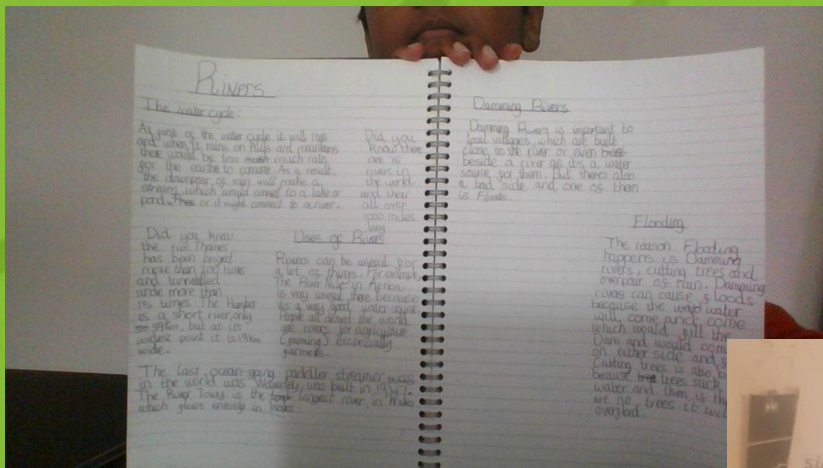 Rivers
The water cycle:
As part of the water cycle it will rain
and when it rains on hills and mountains
there would be too much rain
for the earth to consume. As a result,
the downpour of rain will make a
stream, which would connect to a lake or
pond. Then or it might connect to a river.
Did you
know there
are 15
rivers in
the world
and they
all over
1000 miles
long
Did you know
the river Thames
has been bridged
more than 200 times
and tunnelled
under more than
15 times. The Humber
is a short river, only
59km, but at its
widest point it is
wide.
Uses of Rivers
Rivers can be useful for
a lot of things. For example,
The River Nile in Africa
is very useful there because
its a very good water source.
People all around the world
use rivers for agriculture
(farming) especially
farmers.
The last ocean-going paddeller streamer was
in the world was Waverley, was built in 1947.
The River Towy is the largest river in Wales
which flows entirely in Wales
Damming Rivers
Damming Rivers is important to
local villages, which are built
close to the river or even
beside a river as its a water
source for them. But theres also
a bad side and one of them
is Floods.
Flooding
The reason Flooding
happens is Damming
rivers, cutting trees and
overpour of rain. Damming
rivers can cause floods
because the water
will come and come
which would fill the
Dam and would
on either side and
Cutting trees is also
because trees suck
water and then if
are no trees it
overload.